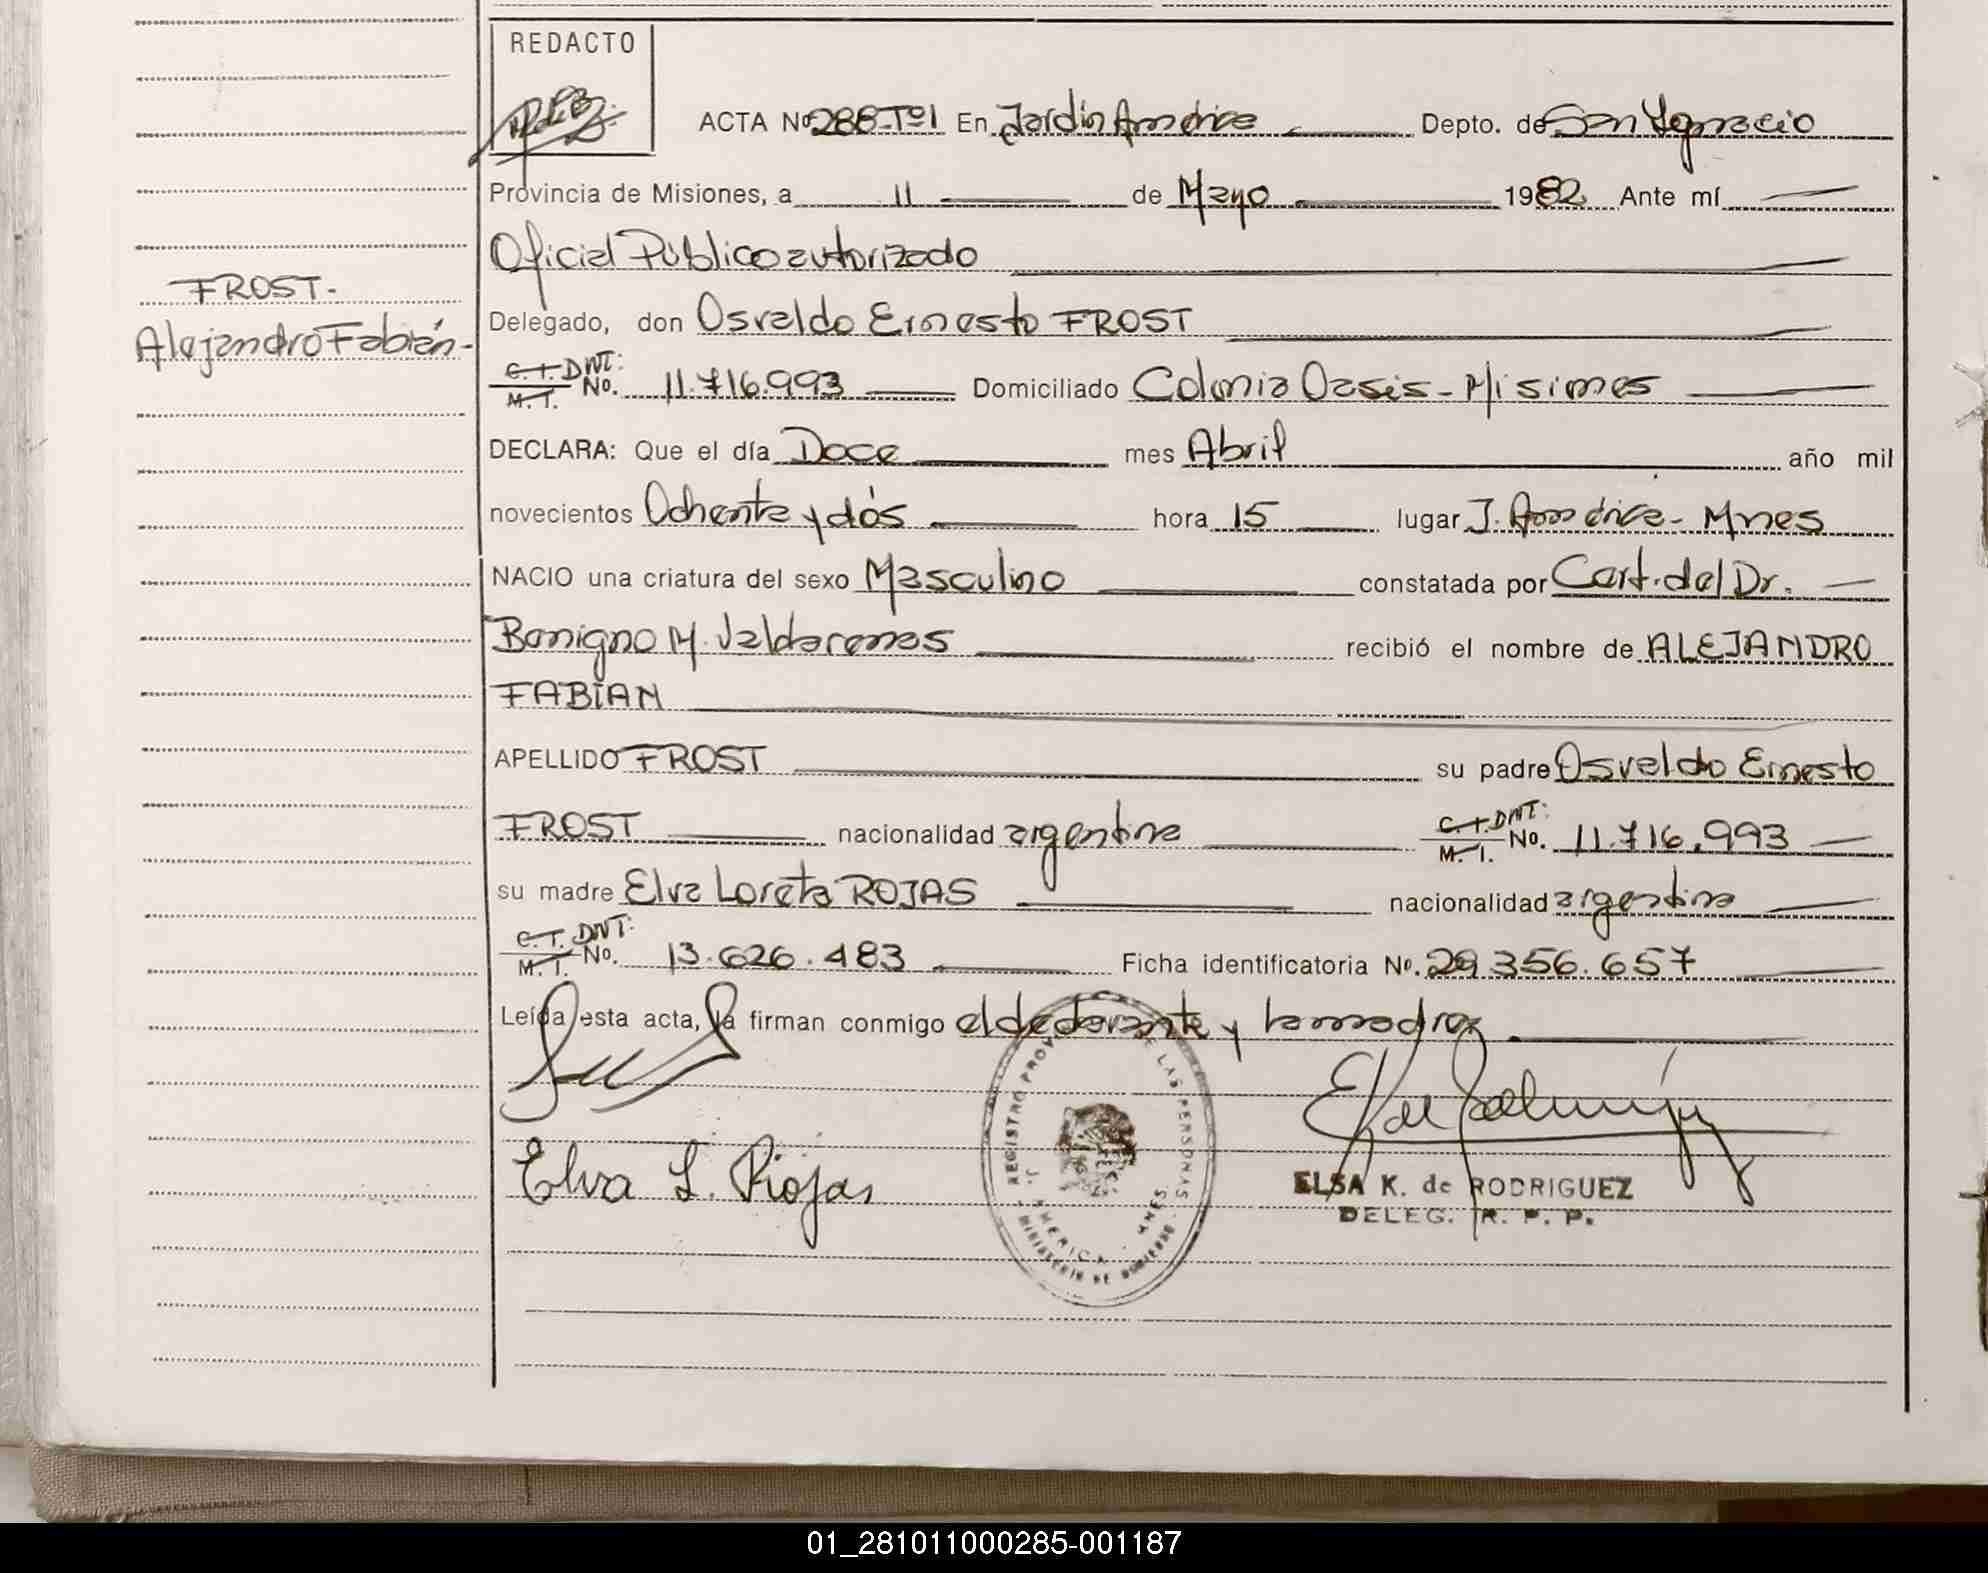 REDACTO
ACTA Nº 288-Tº1 En Jardín América Depto. de San Ignacio
Provincia de Misiones, a 11 de Mayo 1982 Ante mí
Oficial Público autorizado
FROST.
Alejandro Fabián.
Delegado, don Osvaldo Ernesto FROST
C.I. DNI: M.I. No. 11.716.993 Domiciliado Colonia Oasis - Misiones
DECLARA: Que el día Doce mes Abril año mil
novecientos Ochenta y dós hora 15 lugar J. América - Mnes
NACIO una criatura del sexo Masculino constatada por Cert. del Dr.
Benigno M. Valdarenas recibió el nombre de ALEJANDRO
FABIAN
APELLIDO FROST su padre Osvaldo Ernesto
FROST nacionalidad argentina C.I. DNI: M.I. No. 11.716.993
su madre Elva Loreta ROJAS nacionalidad argentina
C.I. DNI: M.I. No. 13.626.483 Ficha identificatoria Nº. 29.356.657
Leída esta acta, la firman conmigo el declarante y la madre
Elva L. Rojas
REGISTRO PROV DE LAS PERSONAS
J. AMERICA - MNES
MINISTERIO DE GOBIERNO
ELSA K. de RODRIGUEZ
DELEG. R. P. P.
01_281011000285-001187